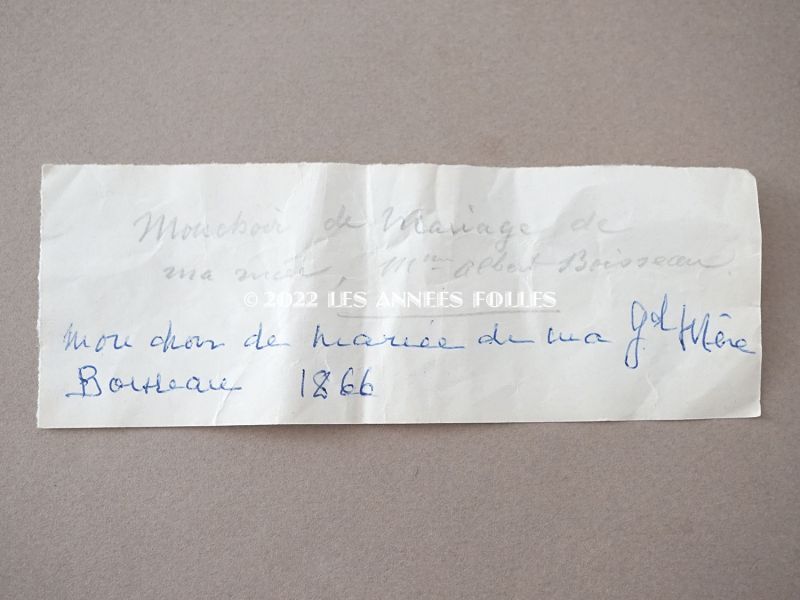 Mouchoir de Mariage de
ma mère, Mme Albert Boisseau.
© 2022 LES ANNÉES FOLLES
Mouchoir de mariée de ma Gd Mère
Boisseau 1866